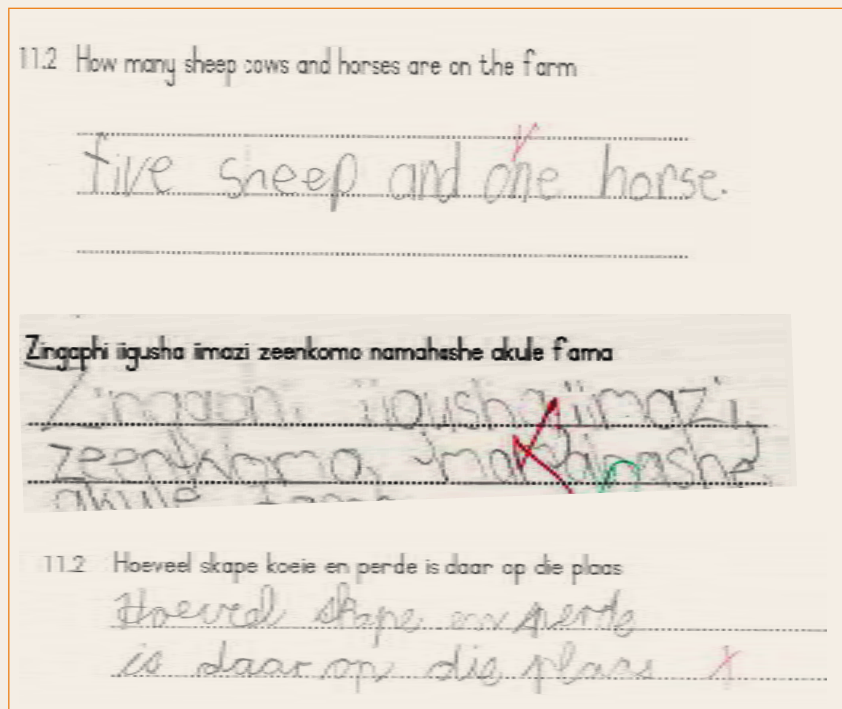 11.2 How many sheep cows and horses are on the farm
five sheep and one horse.
Zingaphi iigusha iimazi zeenkomo namahashe akule fama
Zingaphi iigusha, iimazi,
zeenkomo,
akule
11.2 Hoeveel skape koeie en perde is daar op die plaas
Hoeveel skape en perde
is daar op die plaas